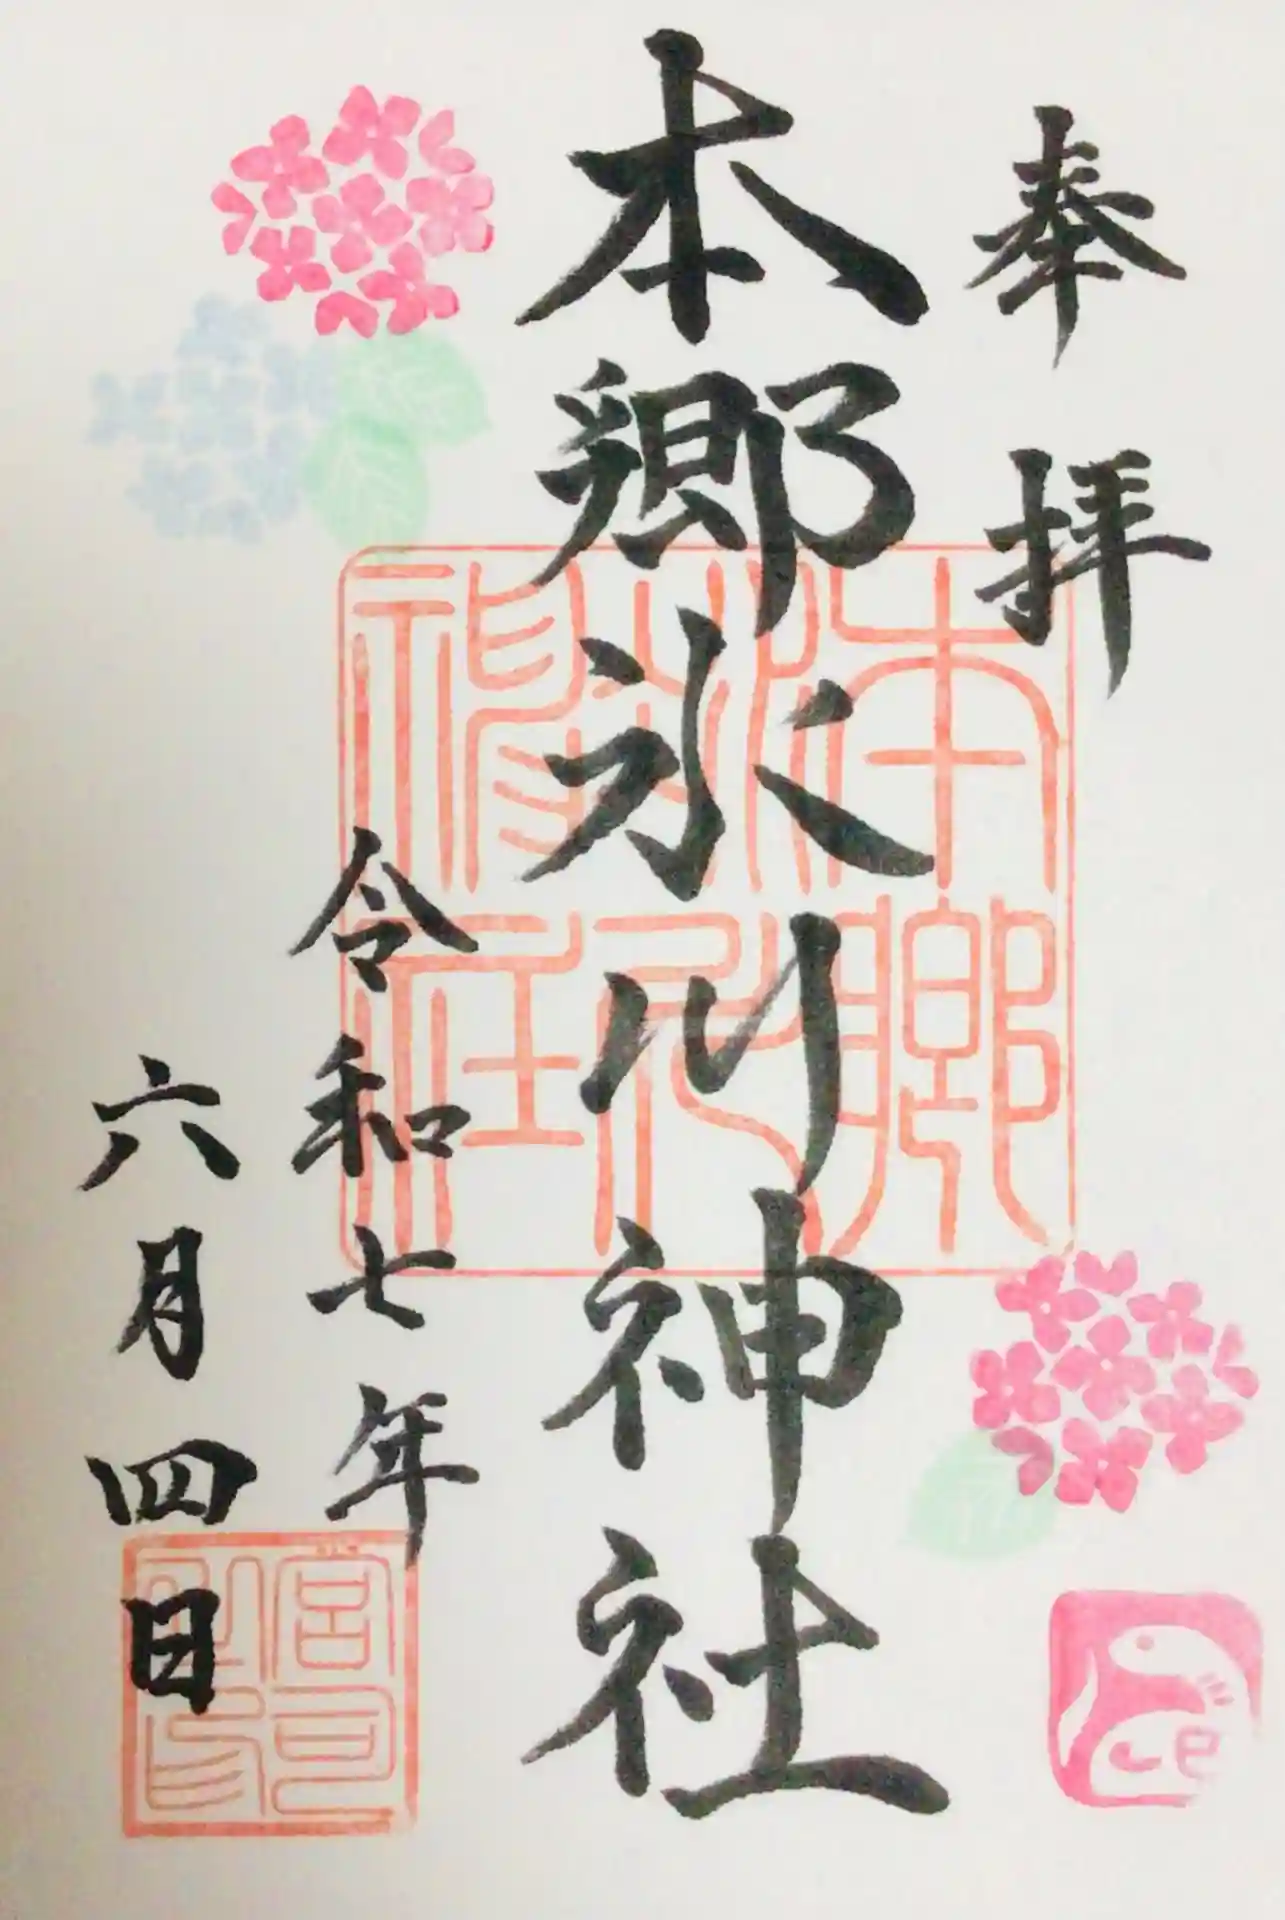 奉拝
本郷氷川神社
令和七年
六月四日
本郷
氷川
神社